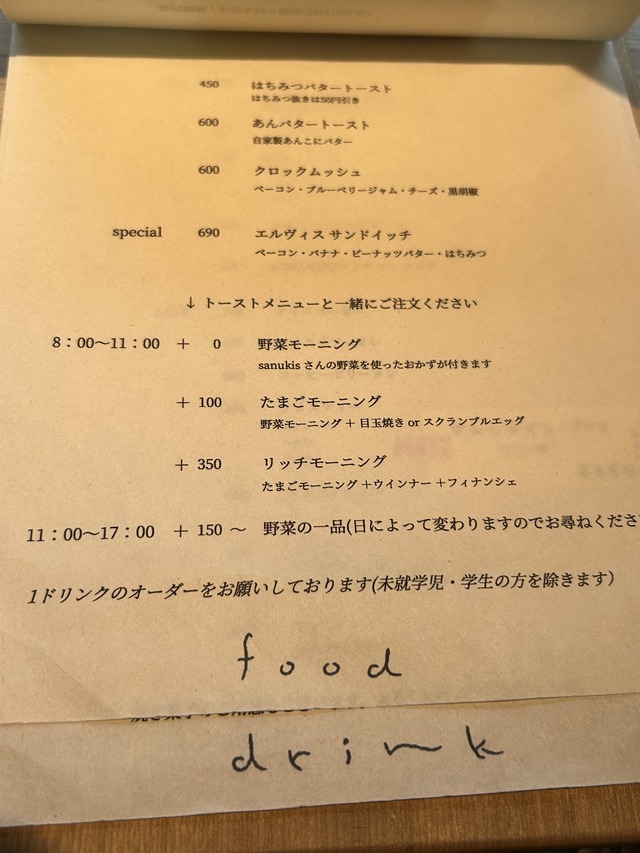 450 はちみつバタートースト
はちみつ抜きは50円引き
600 あんバタートースト
自家製あんこにバター
600 クロックムッシュ
ベーコン・ブルーベリージャム・チーズ・黒胡椒
special 690 エルヴィス サンドイッチ
ベーコン・バナナ・ピーナッツバター・はちみつ
↓ トーストメニューと一緒にご注文ください
8：00〜11：00 ＋ 0 野菜モーニング
sanukis さんの野菜を使ったおかずが付きます
＋ 100 たまごモーニング
野菜モーニング ＋ 目玉焼き or スクランブルエッグ
＋ 350 リッチモーニング
たまごモーニング ＋ウインナー ＋フィナンシェ
11：00〜17：00 ＋ 150 〜 野菜の一品(日によって変わりますのでお尋ねくださ
1ドリンクのオーダーをお願いしております(未就学児・学生の方を除きます）
food
drink